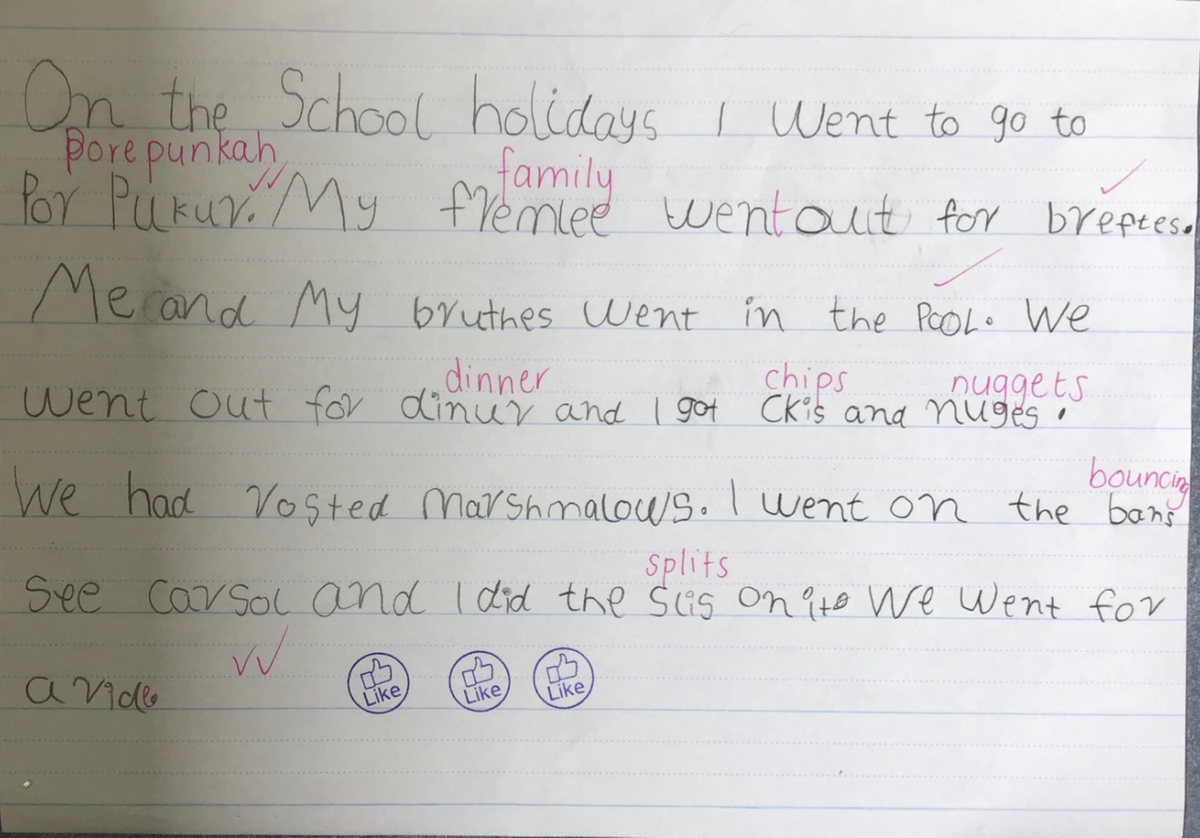 On the School holidays I went to go to
Porepunkah
Por Pukur. My fremlee went out for breftes.
family
Me and My bruthes went in the Pool. We
dinner chips nuggets
went out for dinur and I got Ckis and nuges.
We had rosted marshmalows. I went on the bans
bouncing
splits
See carsol and I did the slis on it. We went for
a ride.
Like Like Like